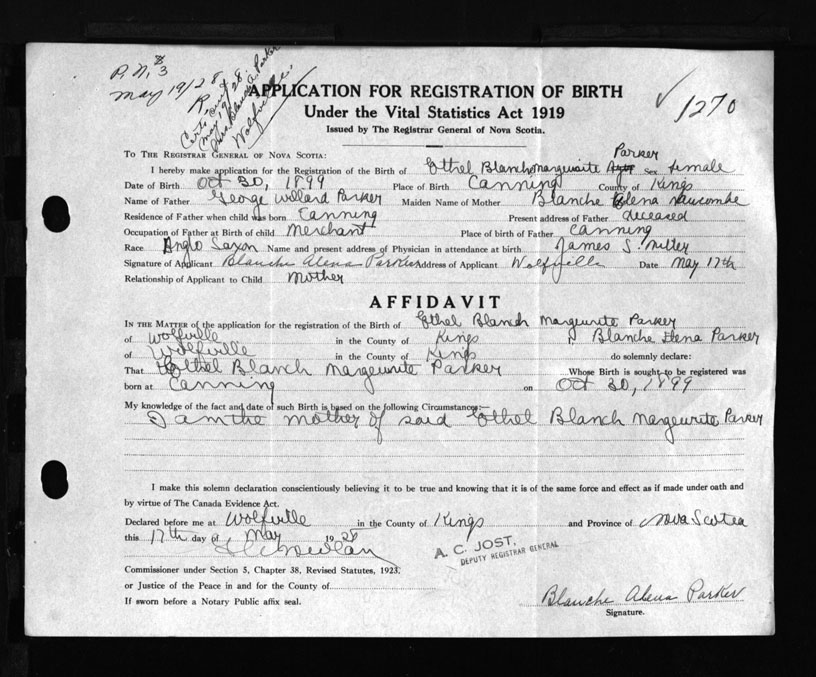 P.N. #3
May 19/28
Certs
May 19/28
Mrs Blanche A. Parker
Wolfville
APPLICATION FOR REGISTRATION OF BIRTH
1270
Under the Vital Statistics Act 1919
Issued by The Registrar General of Nova Scotia.
TO THE REGISTRAR GENERAL OF NOVA SCOTIA:
I hereby make application for the Registration of the Birth of Ethel Blanch Marguerite Parker Sex female
Date of Birth Oct 30, 1899 Place of Birth Canning County of Kings
Name of Father George Willard Parker Maiden Name of Mother Blanche Elena
Residence of Father when child was born Canning Present address of Father deceased
Occupation of Father at Birth of child Merchant Place of birth of Father Canning
Race Anglo Saxon Name and present address of Physician in attendance at birth James S. Miller
Signature of Applicant Blanche Alena Parker Address of Applicant Wolfville Date May 17th
Relationship of Applicant to Child Mother
AFFIDAVIT
IN THE MATTER of the application for the registration of the Birth of Ethel Blanch Margeurite Parker
of Wolfville in the County of Kings I, Blanche Elena Parker
of Wolfville in the County of Kings do solemnly declare:
That Ethel Blanch Margeurite Parker Whose Birth is sought to be registered was
born at Canning on Oct 30, 1899
My knowledge of the fact and date of such Birth is based on the following Circumstances:—
I am the mother of said Ethel Blanch Margeurite Parker
I make this solemn declaration conscientiously believing it to be true and knowing that it is of the same force and effect as if made under oath and
by virtue of The Canada Evidence Act.
Declared before me at Wolfville in the County of Kings and Province of Nova Scotia
this 17th day of May 1928
A. C. JOST,
DEPUTY REGISTRAR GENERAL
Commissioner under Section 5, Chapter 38, Revised Statutes, 1923.
or Justice of the Peace in and for the County of
If sworn before a Notary Public affix seal.
Blanche Alena Parker
Signature.